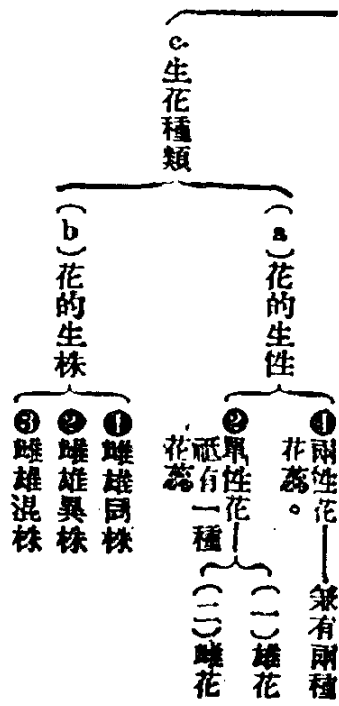 c.生花種類
(a)花的生性
❶兩性花——兼有兩種
花蕊。
❷單性花
祇有一種
花蕊。
(一)雄花
(二)雌花
(b)花的生株
❶雌雄同株
❷雌雄異株
❸雌雄混株